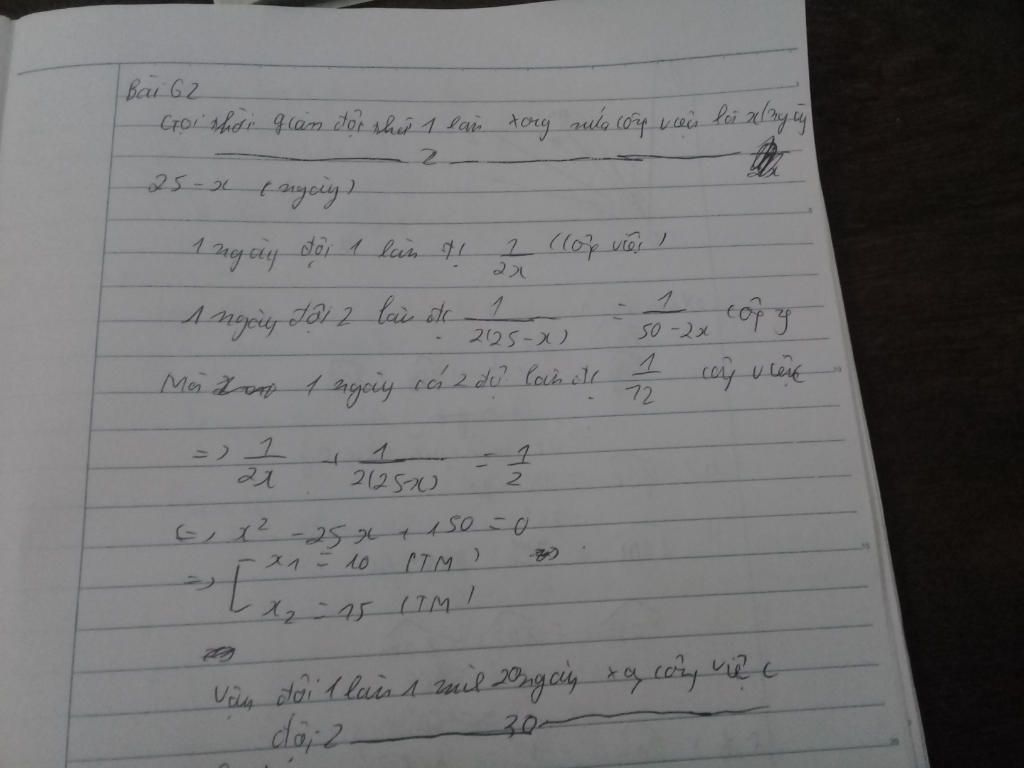 Bài 62
Gọi thời gian đội thứ 1 làn xong nửa công việc là x (ngày
2
25 - x (ngày)
1 ngày đội 1 làn đc 1/2x (công việc)
1 ngày đội 2 làn đc 1/2(25-x) = 1/50-2x công
Mà 1 ngày cả 2 đội làn đc 1/12 công việc
=> 1/2x + 1/2(25-x) = 1/2
<=> x² - 25x + 150 = 0
=> [ x1 = 10 (TM)
x2 = 15 (TM)
Vậy đội 1 làn 1 mìl 20 ngày xg công việc
đội 2 30